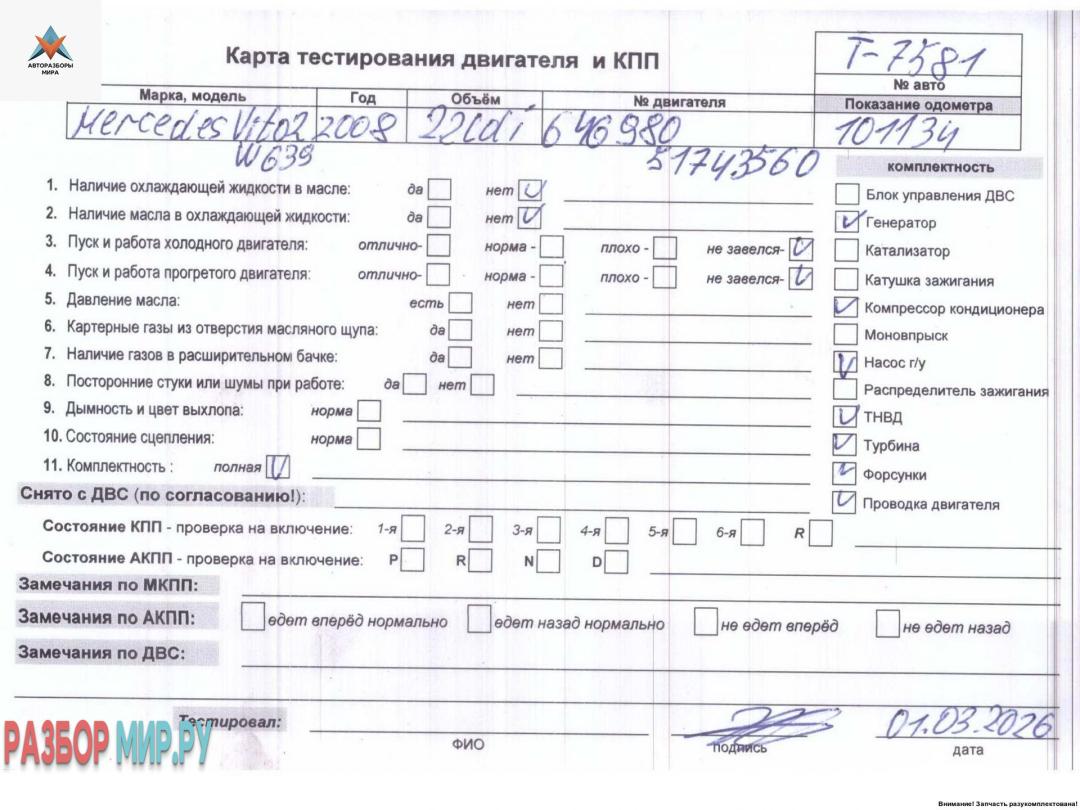 АВТОРАЗБОРЫ
МИРА
Карта тестирования двигателя и КПП
T-7581
№ авто
Марка, модель Год Объём № двигателя Показание одометра
Mercedes Vito2 2008 22Cdi 646980 101134
W639 51743560
комплектность
1. Наличие охлаждающей жидкости в масле: да нет
Блок управления ДВС
2. Наличие масла в охлаждающей жидкости: да нет
Генератор
3. Пуск и работа холодного двигателя: отлично- норма - плохо - не завелся-
Катализатор
4. Пуск и работа прогретого двигателя: отлично- норма - плохо - не завелся-
Катушка зажигания
5. Давление масла: есть нет
Компрессор кондиционера
6. Картерные газы из отверстия масляного щупа: да нет
Моновпрыск
7. Наличие газов в расширительном бачке: да нет
Насос г/у
8. Посторонние стуки или шумы при работе: да нет
Распределитель зажигания
9. Дымность и цвет выхлопа: норма
ТНВД
10. Состояние сцепления: норма
Турбина
11. Комплектность : полная
Форсунки
Снято с ДВС (по согласованию!):
Проводка двигателя
Состояние КПП - проверка на включение: 1-я 2-я 3-я 4-я 5-я 6-я R
Состояние АКПП - проверка на включение: P R N D
Замечания по МКПП:
Замечания по АКПП: едет вперёд нормально едет назад нормально не едет вперёд не едет назад
Замечания по ДВС:
Тестировал:
01.03.2026
ФИО подпись дата
РАЗБОР МИР.РУ
Внимание! Запчасть разукомплектована!